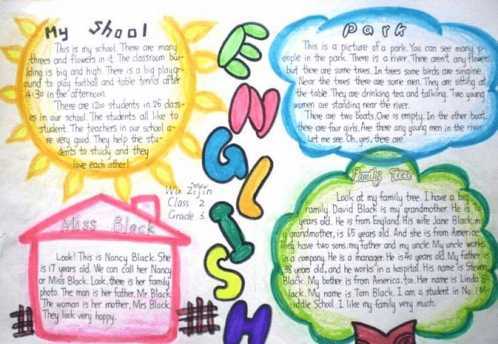 My Shool
This is my school. There are many
threes and flowers in it. The classroom bui-
lding is big and high. There is a big playgr-
ound to play football and table tennis after
4:30 in the afternoon.
There are 1200 students in 26 class-
es in our school. The students all like to
student. The teachers in our school a-
re very good. They help the stu-
dents to study and they
love each other!
ENGLISH
Class 2
Grade 3
Park
This is a picture of a park. You can see many p-
eople in the park. There is a river. There aren't any flowers
but there are some trees. In trees some birds are singing.
Near the trees there are some men. They are sitting at
the table. They are drinking tea and talking. Two young
women are standing near the river.
There are two boats. One is empty. In the other boat,
there are four girls. Are there any young men in the river?
Let me see. Oh, yes, there are.
Miss Black
Look! This is Nancy Black. She
is 17 years old. We can call her Nancy
or Miss Black. Look, there is her family
photo. The man is her father, Mr Black.
The woman is her mother, Mrs Black.
They look very happy.
Family Tree
Look at my family tree. I have a big
family. David Black is my grandmother. He is
years old. He is from England. His wife Jane Black, m-
y grandmother, is 65 years old. And she is from Americ-
They have two sons, my father and my uncle. My uncle works
in a company. He is a manager. He is 40 years old. My father
38 years old, and he works in a hospital. His name is Steven
Black. My bother is from America, too. Her name is Linda
lack. My name is Tom Black. I am a student in No. 1 M-
iddle School. I like my family very much.